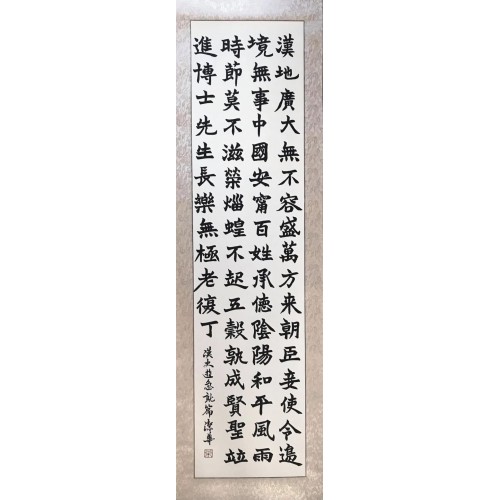 漢地廣大無不容盛萬方来朝臣妾使令邊
境無事中國安甯百姓承德陰陽和平風雨
時節莫不滋榮蝗不起五穀孰成賢聖竝
進博士先生長樂無極老復丁
漢史游急就篇華